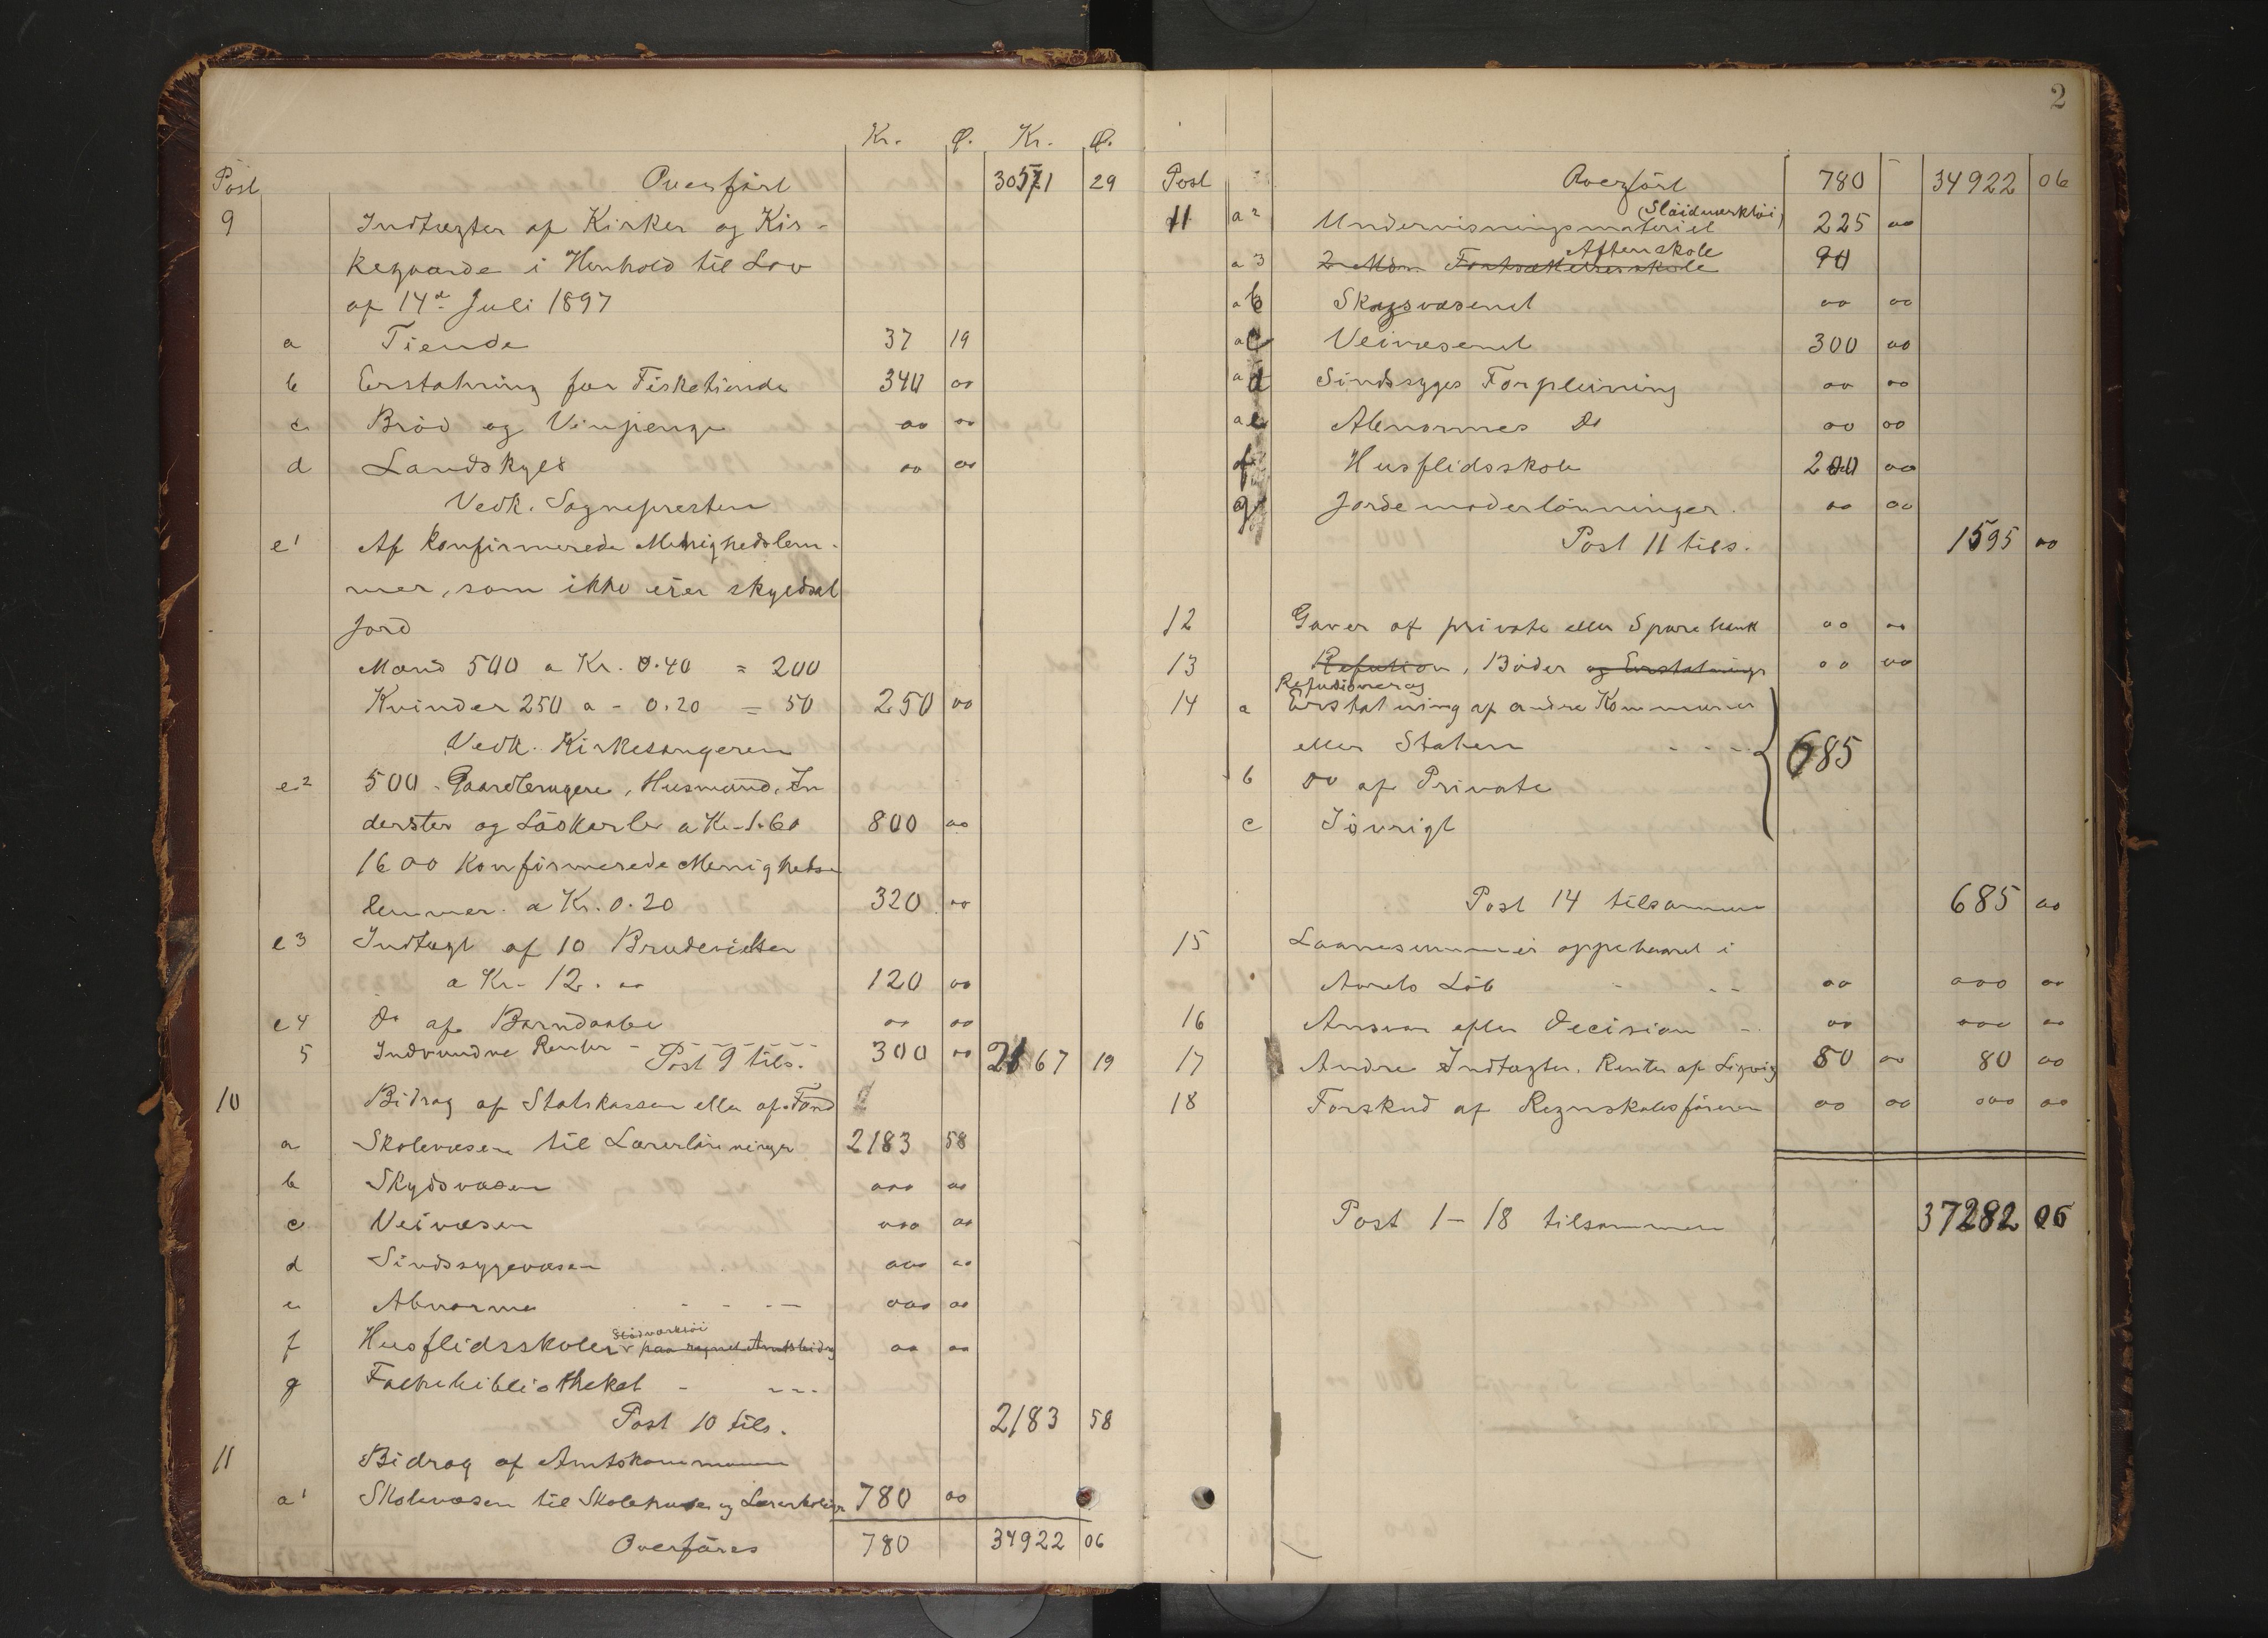 Kr. Ø. Kr. Ø.
Post Overført 30571 29
9 Indtægter af Kirker og Kir-
kegaarde i Henhold til Lov
af 14de Juli 1897
a Tiende 37 19
b Erstatning for Fisketiende 340 00
c Brød og Vinpenge 00 00
d Landskyld 00 00
Vedk. Sognepresten
e1 Af Konfirmerede Menighedslem-
mer, som ikke eier skyldsat
Jord
Mænd 500 a Kr. 0.40 = 200
Kvinder 250 a - 0.20 = 50 250 00
Vedk. Kirkesangeren
e2 500 Gaardbrugere, Husmænd, In
derster og Løskarle a Kr. 1.60 800 00
1600 Konfirmerede Menigheds
lemmer a Kr. 0.20 320 00
e3 Indtægt af 10 Brudevielser
a Kr. 12.00 120 00
e4 Do af Barndaabe 00 00
5 Indvundne Renter - Post 9 tils. 300 00 2167 19
10 Bidrag af Statskassen eller af Fond
a Skolevæsen til Lærerlønninger 2183 58
b Skydsvæsen 000 00
c Veivæsen 000 00
d Sindssygevæsen 000 00
e Abnorme - - - - 000 00
f Husflidsskoler Slöidværktöi paa regnet Amtsbidrag 00 00
g Folkebibliotheket - ---
Post 10 tils. 2183 58
11 Bidrag af Amtskommunen
a1 Skolevæsen til Skolehuse og Lærerboliger 780 00
Overføres 780 34922 06
2
Post Overført 780 34922 06
11 a2 Undervisningsmateriel (Slöidværktöi) 225 00
Aftenskole
a3 2 Mdrs. Fortsættelsesskole 90
b Skydsvæsenet 00 00
c Veivæsenet 300 00
d Sindssyges Forpleining 00 00
e Abnormes Do 00 00
f Husflidsskole 200 00
g Jordemoderlønninger 00 00
Post 11 tils. 1595 00
12 Gaver af private eller Sparebank 00 00
13 Refution, Bøder og Erstatninger 00 00
Refusioner og
14 a Erstatning af andre Kommuner
eller Staten - - - 685
b Do af Private
c Iøvrigt
Post 14 tilsammen 685 00
15 Laanesummer oppebaaret i
Aarets Løb - - - 00 000 00
16 Ansvar efter Decision - 00 000 00
17 Andre Indtægter, Renter af Ligning 80 00 80 00
18 Forskud af Regnskabsføreren 00 00 000 00
Post 1-18 tilsammen 37282 06